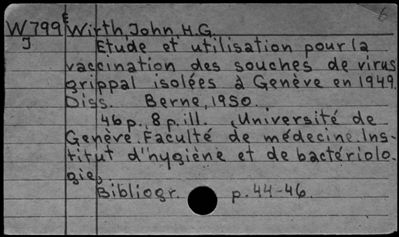 6
W799E Wirth, John, H.G.
J Etude et utilisation pour la
vaccination des souches de virus
grippal isolées à Genève en 1949.
Diss. Berne, 1950.
46p., 8p. ill. (Université de
Genève. Faculté de médecine. Ins-
titut d'hygiène et de bactériolo-
gie,
Bibliogr. p. 44-46.